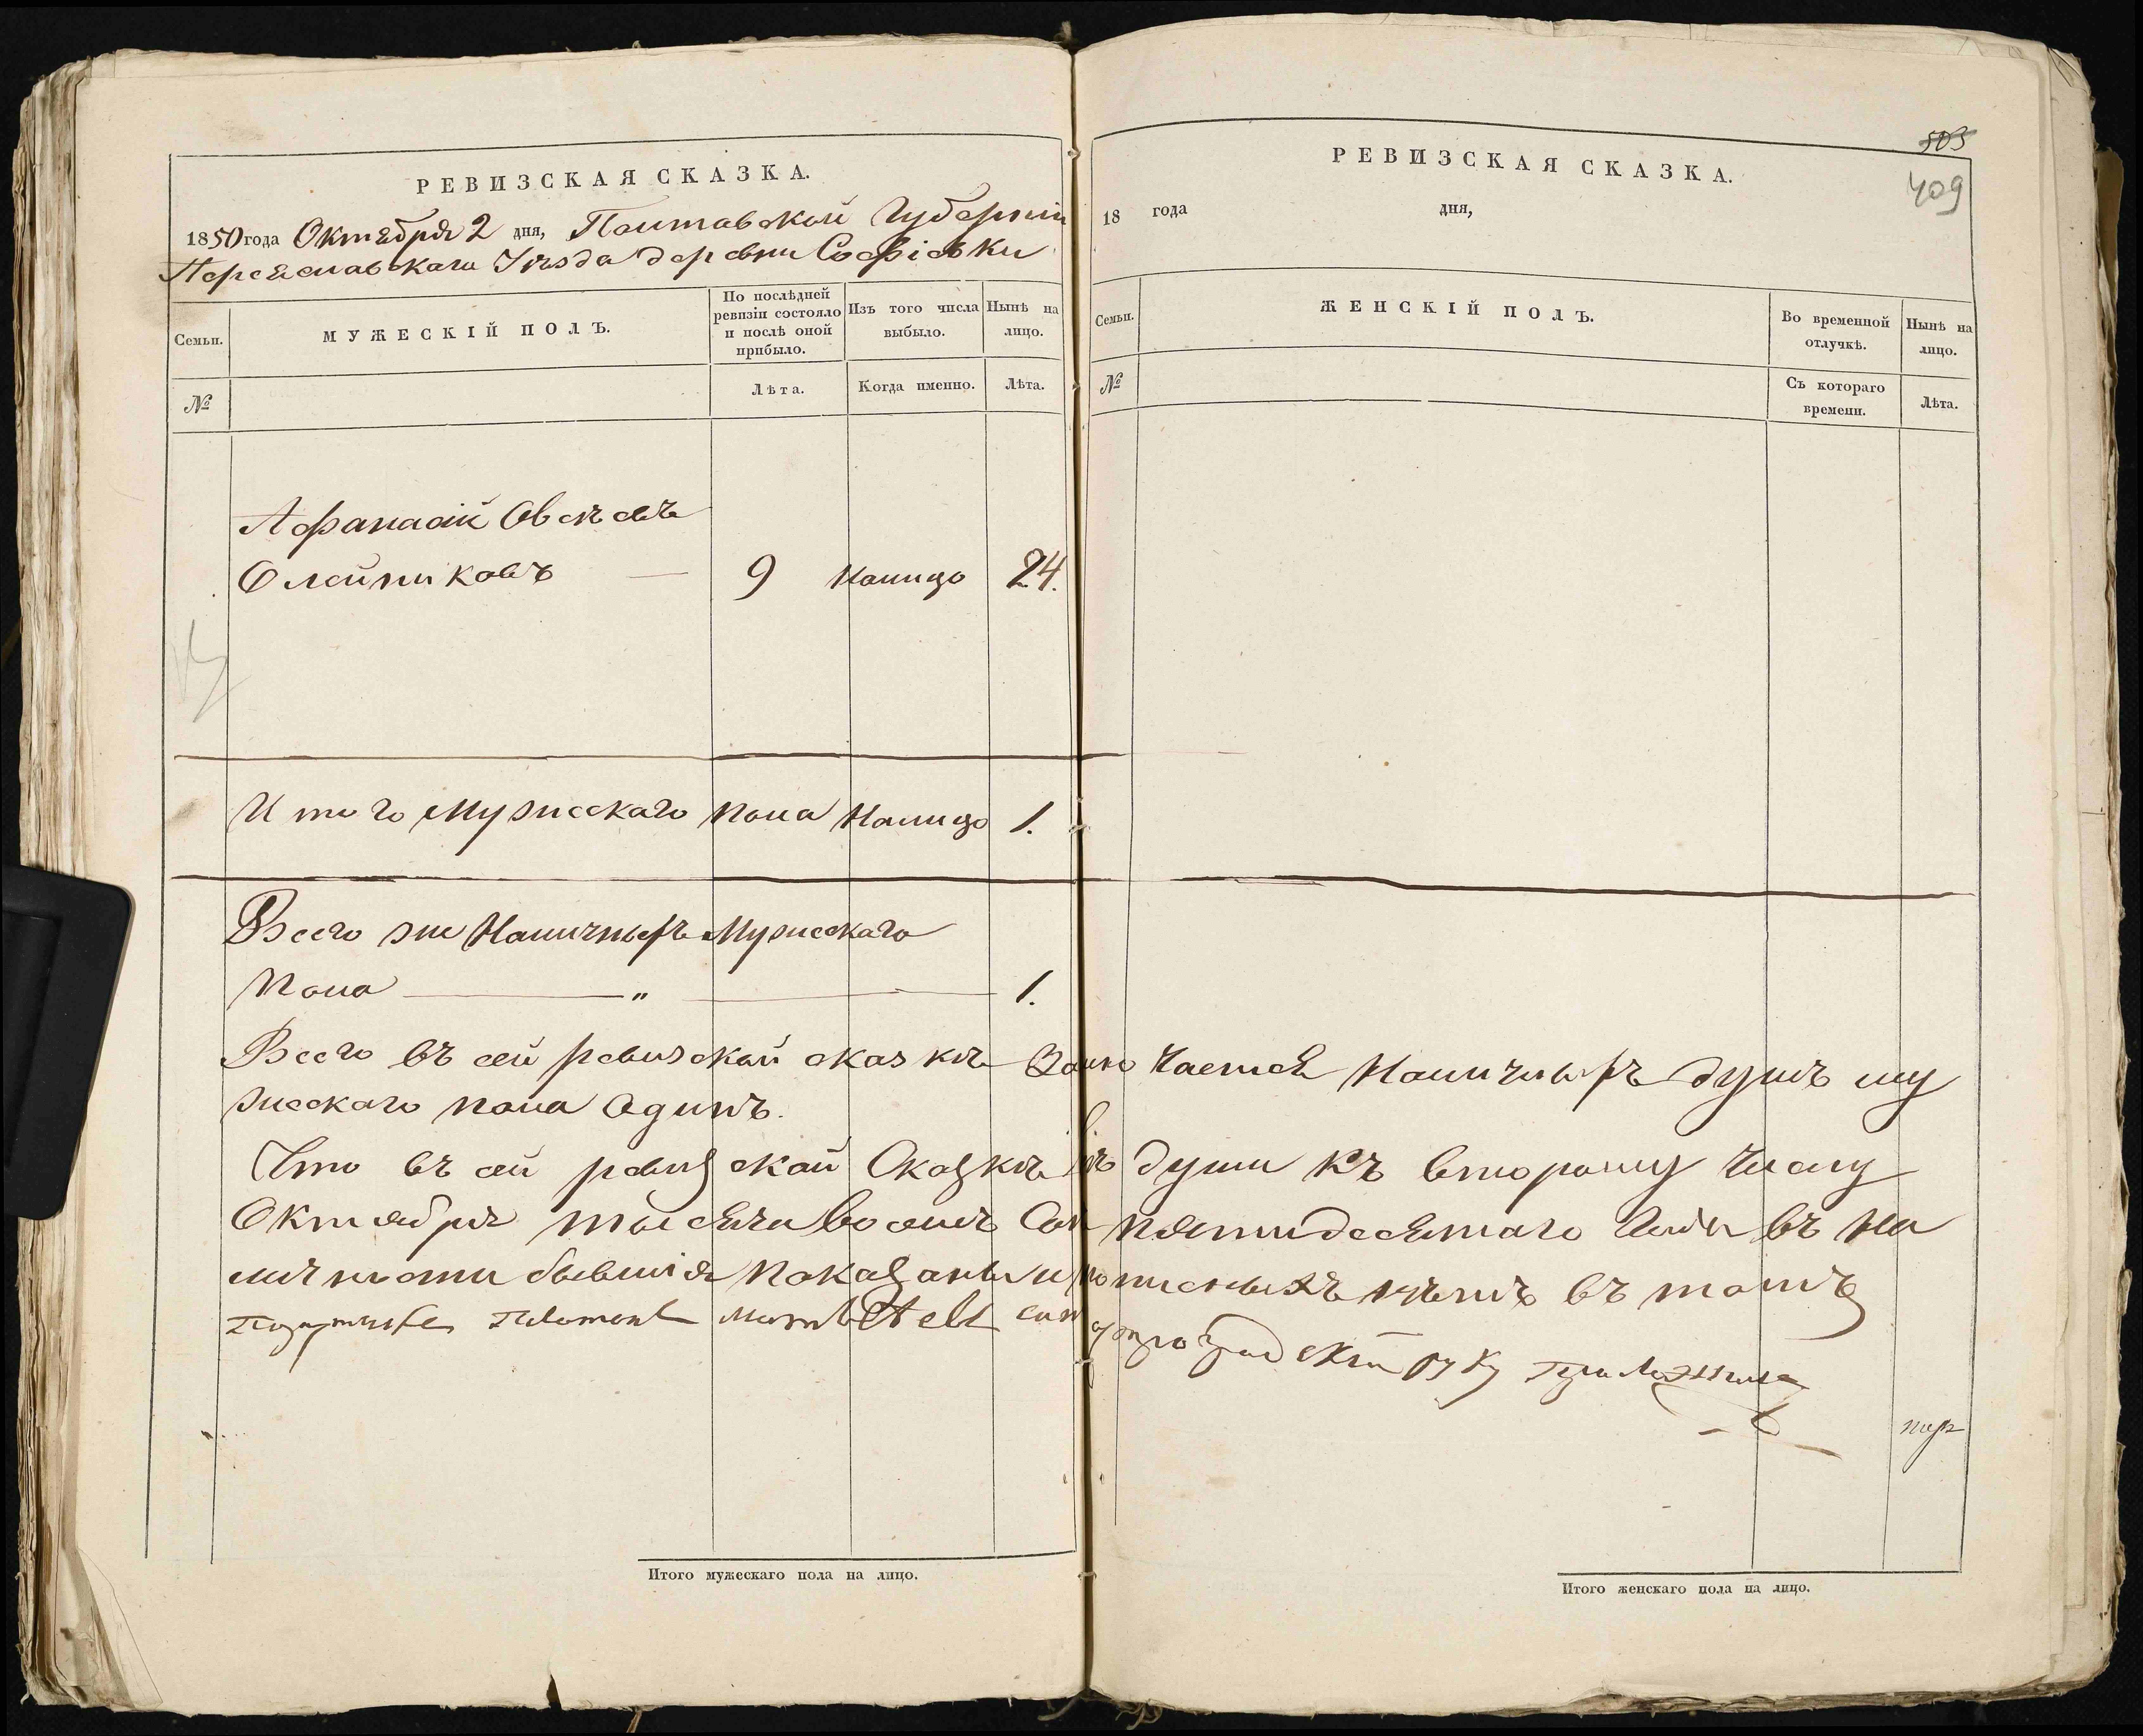 РЕВИЗСКАЯ СКАЗКА.
1850 года Октября 2 дня, Полтавской Губерніи
Переяславскаго Уѣзда деревни Софіевки
Семьи.
МУЖЕСКІЙ ПОЛЪ.
По послѣдней ревизіи состояло и послѣ оной прибыло.
Изъ того числа выбыло.
Нынѣ на лицо.
№
Лѣта.
Когда именно.
Лѣта.
Афанасій Овсѣевъ
Олейниковъ — 9 Налицо 24.
Итого Мужескаго пола Налицо 1.
Всего же Наличныхъ Мужескаго
пола — " — 1.
503
409
РЕВИЗСКАЯ СКАЗКА.
18 года дня,
Семьи.
ЖЕНСКІЙ ПОЛЪ.
Во временной отлучкѣ.
Нынѣ на лицо.
№
Съ котораго времени.
Лѣта.
Всего въ сей ревизской сказкѣ Заключается Наличныхъ душъ му
жескаго пола Одинъ.
Что въ сей ревизской Сказкѣ всѣ души къ второму числу
Октября тысяча восемъ Сотъ пятидесятаго Года въ на
личности бывшія показаны и прописныхъ нѣтъ въ томъ
руку приложилъ
Итого мужескаго пола на лицо.
Итого женскаго пола на лицо.